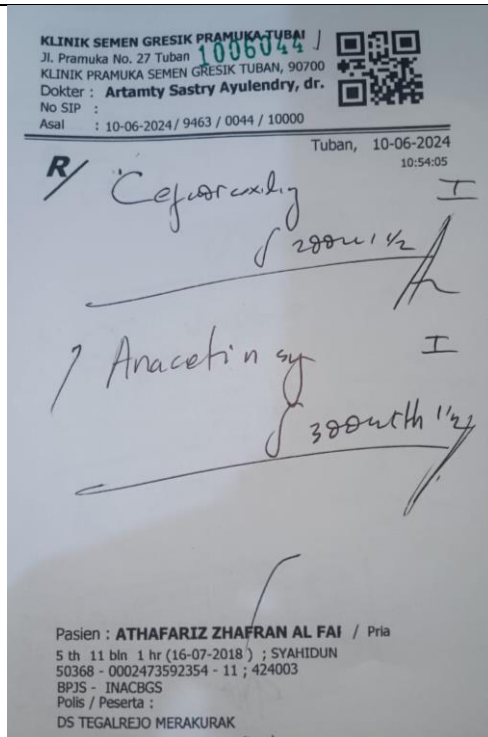 KLINIK SEMEN GRESIK PRAMUKA TUBAN
1006044
Jl. Pramuka No. 27 Tuban
KLINIK PRAMUKA SEMEN GRESIK TUBAN, 90700
Dokter : Artamty Sastry Ayulendry, dr.
No SIP :
Asal : 10-06-2024 / 9463 / 0044 / 10000
Tuban, 10-06-2024
10:54:05
R/
I
1 1/2
Anacetin sy I
1 1/2
Pasien : ATHAFARIZ ZHAFRAN AL FAI / Pria
5 th 11 bln 1 hr (16-07-2018) ; SYAHIDUN
50368 - 0002473592354 - 11 ; 424003
BPJS - INACBGS
Polis / Peserta :
DS TEGALREJO MERAKURAK